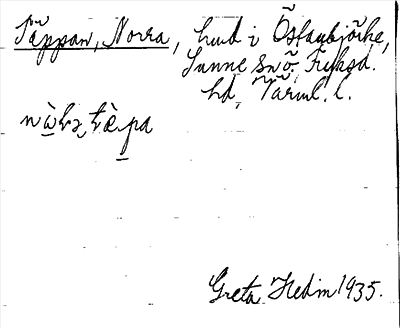 Täppan, Norra, hmd i Östanbjörke,
Sunne sn ö. Fryksd.
hd, Värml. l.
Greta Hedin 1935.